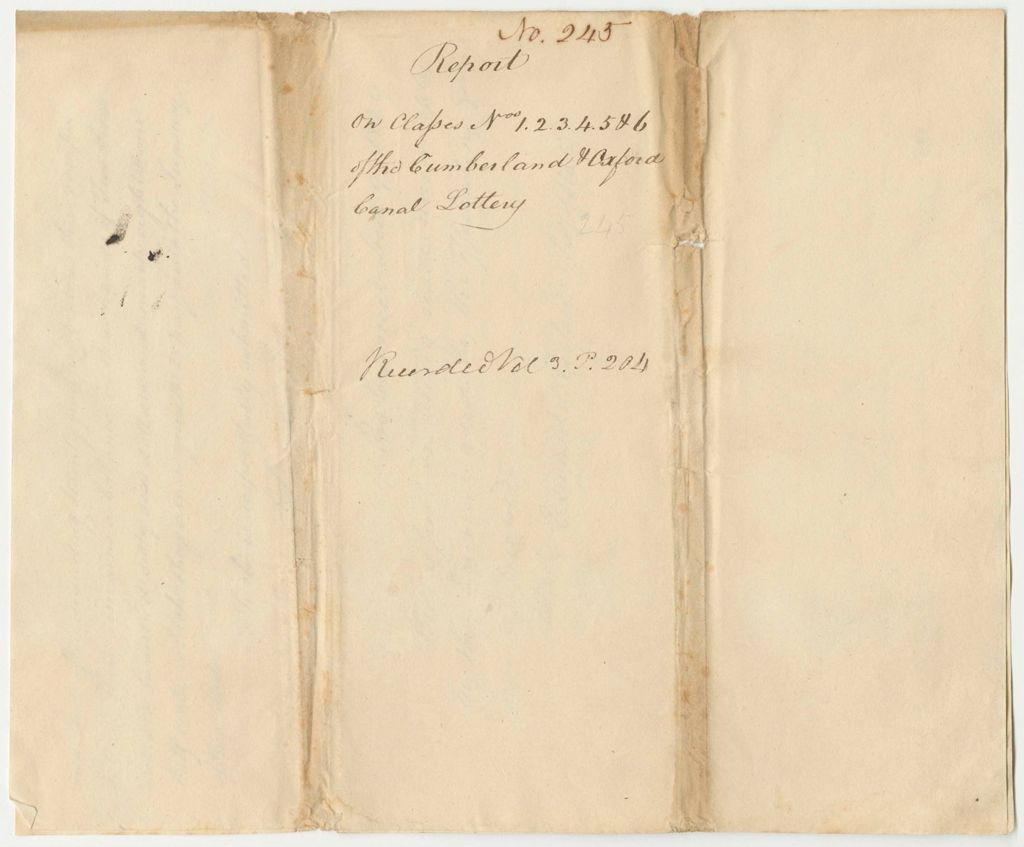 No. 245
Report
On Classes Nos 1. 2. 3. 4. 5 & 6
of the Cumberland & Oxford
Canal Lottery
245
Recorded Vol 3. P. 204